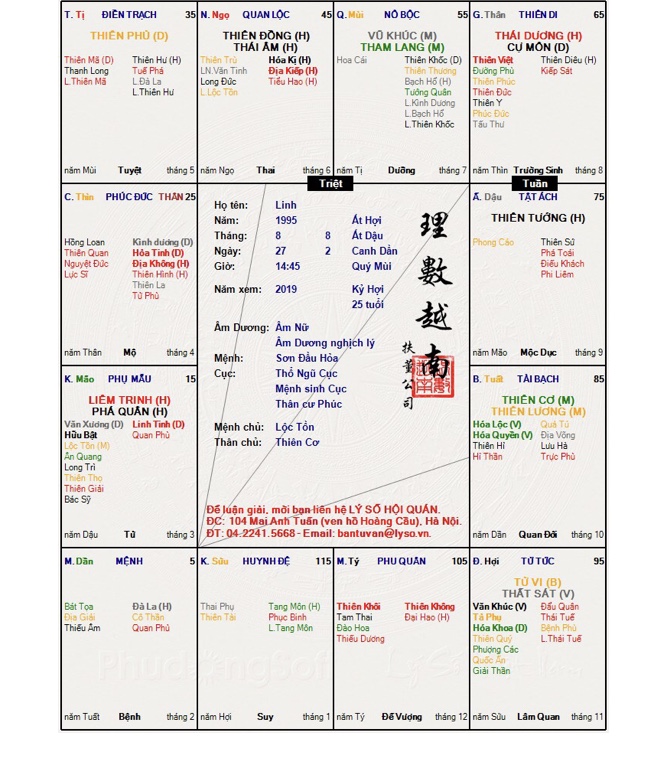 T. Tị ĐIỀN TRẠCH 35
THIÊN PHỦ (D)
Thiên Mã (D) Thiên Hư (H)
Thanh Long Tuế Phá
L.Thiên Mã L.Đà La
L.Thiên Hư
năm Mùi Tuyệt tháng 5
N. Ngọ QUAN LỘC 45
THIÊN ĐỒNG (H)
THÁI ÂM (H)
Thiên Trù Hóa Kị (H)
LN.Văn Tinh Địa Kiếp (H)
Long Đức Tiểu Hao (H)
L.Lộc Tồn
năm Ngọ Thai tháng 6
Q. Mùi NÔ BỘC 55
VŨ KHÚC (M)
THAM LANG (M)
Hoa Cái Thiên Khốc (D)
Thiên Thương
Bạch Hổ (H)
Tướng Quân
L.Kình Dương
L.Bạch Hổ
L.Thiên Khốc
năm Tị Dưỡng tháng 7
G. Thân THIÊN DI 65
THÁI DƯƠNG (H)
CỰ MÔN (D)
Thiên Việt Thiên Diêu (H)
Đường Phù Kiếp Sát
Thiên Phúc
Thiên Đức
Thiên Y
Phúc Đức
Tấu Thư
năm Thìn Trường Sinh tháng 8
Triệt
Tuần
C. Thìn PHÚC ĐỨC THÂN 25
Hồng Loan Kình dương (D)
Thiên Quan Hỏa Tinh (D)
Nguyệt Đức Địa Không (H)
Lực Sĩ Thiên Hình (H)
Thiên La
Tử Phù
năm Thân Mộ tháng 4
Họ tên: Linh
Năm: 1995 Ất Hợi
Tháng: 8 8 Ất Dậu
Ngày: 27 2 Canh Dần
Giờ: 14:45 Quý Mùi
Năm xem: 2019 Kỷ Hợi
25 tuổi
Âm Dương: Âm Nữ
Âm Dương nghịch lý
Mệnh: Sơn Đầu Hỏa
Cục: Thổ Ngũ Cục
Mệnh sinh Cục
Thân cư Phúc
Mệnh chủ: Lộc Tồn
Thân chủ: Thiên Cơ
理數越南
扶董公司
Để luận giải, mời bạn liên hệ LÝ SỐ HỘI QUÁN.
ĐC: 104 Mai Anh Tuấn (ven hồ Hoàng Cầu), Hà Nội.
ĐT: 04.2241.5668 - Email: bantuvan@lyso.vn.
Ấ. Dậu TẬT ÁCH 75
THIÊN TƯỚNG (H)
Phong Cáo Thiên Sứ
Phá Toái
Điếu Khách
Phi Liêm
năm Mão Mộc Dục tháng 9
K. Mão PHỤ MẪU 15
LIÊM TRINH (H)
PHÁ QUÂN (H)
Văn Xương (D) Linh Tinh (D)
Hữu Bật Quan Phủ
Lộc Tồn (M)
Ân Quang
Long Trì
Thiên Thọ
Thiên Giải
Bác Sỹ
năm Dậu Tử tháng 3
B. Tuất TÀI BẠCH 85
THIÊN CƠ (M)
THIÊN LƯƠNG (M)
Hóa Lộc (V) Quả Tú
Hóa Quyền (V) Địa Võng
Thiên Hỉ Lưu Hà
Hỉ Thần Trực Phù
năm Dần Quan Đới tháng 10
M. Dần MỆNH 5
Bát Tọa Đà La (H)
Địa Giải Cô Thần
Thiếu Âm Quan Phù
năm Tuất Bệnh tháng 2
K. Sửu HUYNH ĐỆ 115
Thai Phụ Tang Môn (H)
Thiên Tài Phục Binh
L.Tang Môn
năm Hợi Suy tháng 1
M. Tý PHU QUÂN 105
Thiên Khôi Thiên Không
Tam Thai Đại Hao (H)
Đào Hoa
Thiếu Dương
năm Tý Đế Vượng tháng 12
Đ. Hợi TỬ TỨC 95
TỬ VI (B)
THẤT SÁT (V)
Văn Khúc (V) Đẩu Quân
Tả Phụ Thái Tuế
Hóa Khoa (D) Bệnh Phù
Thiên Quý L.Thái Tuế
Phượng Các
Quốc Ấn
Giải Thần
năm Sửu Lâm Quan tháng 11